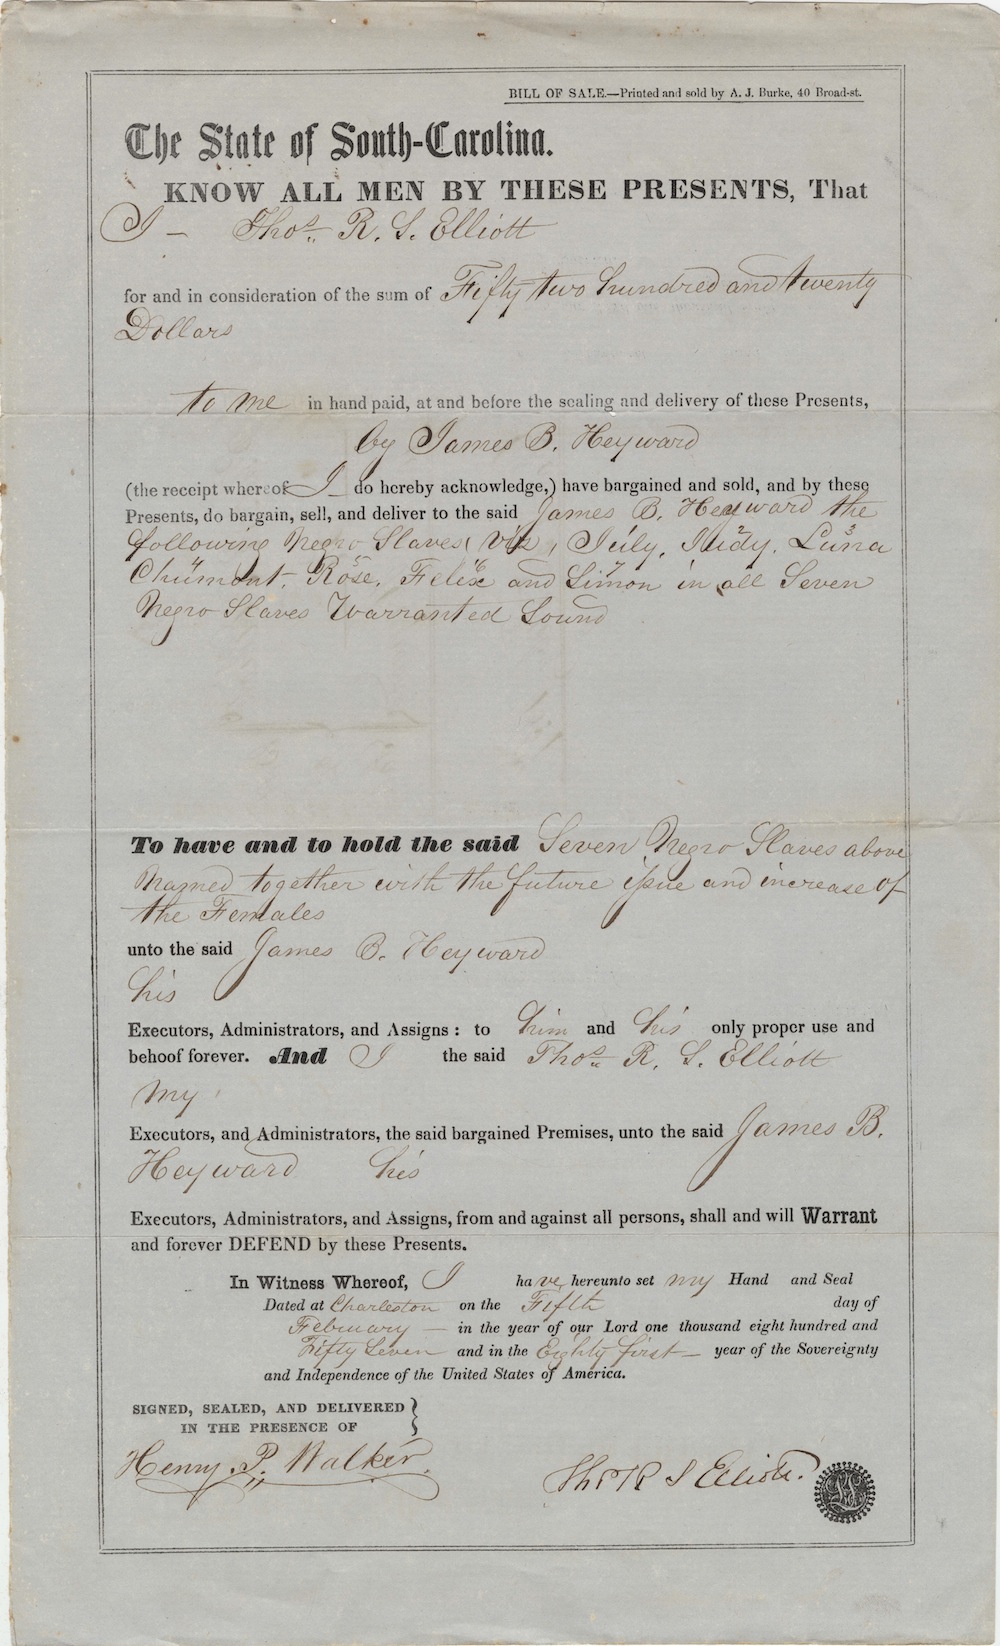 BILL OF SALE.—Printed and sold by A. J. Burke, 40 Broad-st.
The State of South-Carolina.
KNOW ALL MEN BY THESE PRESENTS, That
I — Thos. R. S. Elliott
for and in consideration of the sum of Fifty two hundred and twenty
Dollars
to me in hand paid, at and before the sealing and delivery of these Presents,
by James B. Heyward
(the receipt whereof I do hereby acknowledge,) have bargained and sold, and by these
Presents, do bargain, sell, and deliver to the said James B. Heyward the
following Negro Slaves, viz, July, Judy, Luna
Rose, Felix and Simon in all Seven
Negro Slaves Warranted Sound
To have and to hold the said Seven Negro Slaves above
Named together with the future issue and increase of
the Females
unto the said James B. Heyward
his
Executors, Administrators, and Assigns: to him and his only proper use and
behoof forever. And I the said Thos. R. S. Elliott
my
Executors, and Administrators, the said bargained Premises, unto the said James B.
Heyward his
Executors, Administrators, and Assigns, from and against all persons, shall and will Warrant
and forever DEFEND by these Presents.
In Witness Whereof, I have hereunto set my Hand and Seal
Dated at Charleston on the Fifth day of
February — in the year of our Lord one thousand eight hundred and
Fifty Seven and in the Eighty first — year of the Sovereignty
and Independence of the United States of America.
SIGNED, SEALED, AND DELIVERED }
IN THE PRESENCE OF
Henry P. Walker.
Thos R S Elliott.
LS